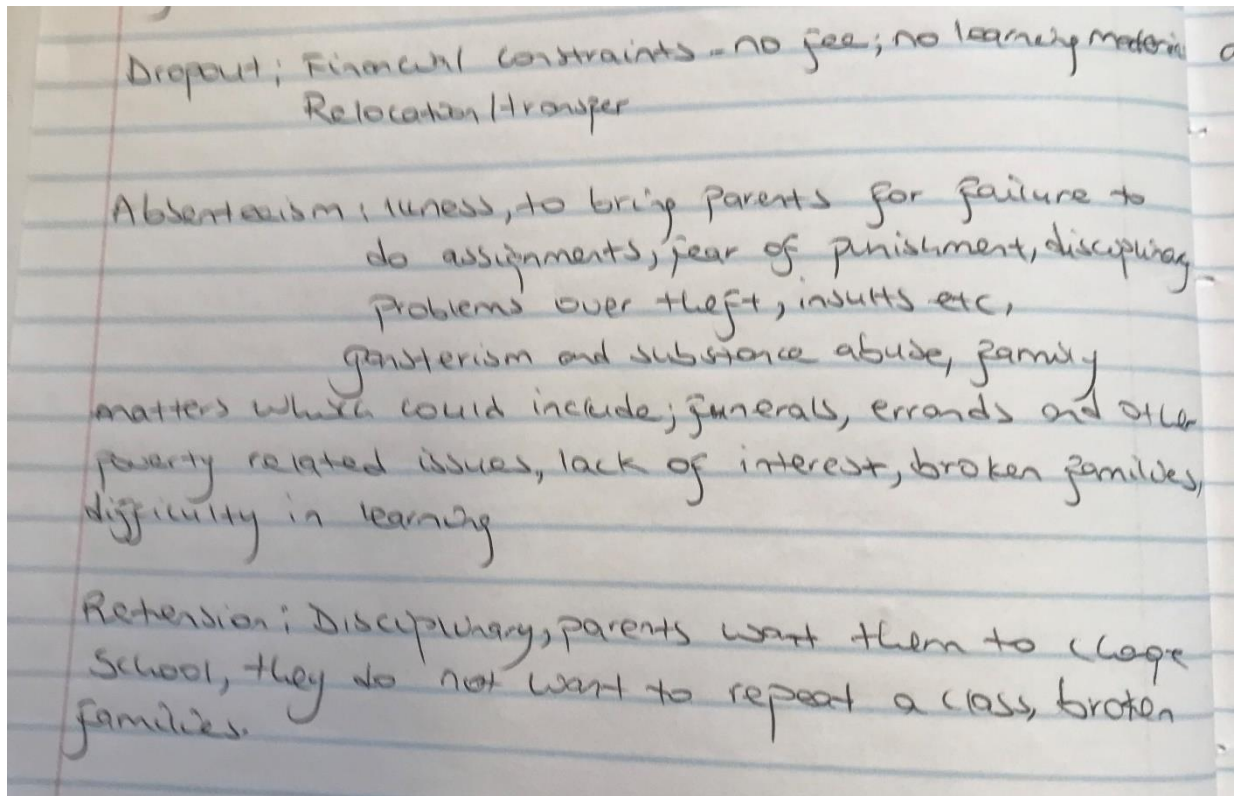 Dropout; Financial constraints - no fee; no learning materi
Relocation/transfer
Absenteeism; iuness, to bring parents for failure to
do assignments, fear of punishment, disciplinary
problems over theft, insults etc,
gansterism and substance abuse, family
matters which could include; funerals, errands and other
poverty related issues, lack of interest, broken families,
difficulty in learning
Retension; Disciplinary, parents want them to
school, they do not want to repeat a class, broken
families.